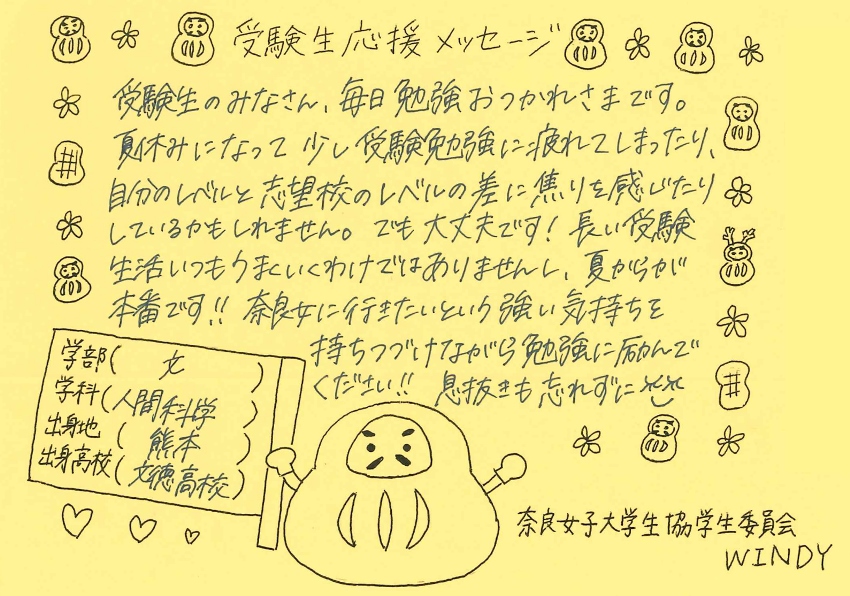 受験生応援メッセージ
受験生のみなさん、毎日勉強おつかれさまです。
夏休みになって少し受験勉強に疲れてしまったり、
自分のレベルと志望校のレベルの差に焦りを感じたり
しているかもしれません。でも大丈夫です！長い受験
生活いつもうまくいくわけではありませんし、夏からが
本番です!!奈良女に行きたいという強い気持ちを
持ちつづけながら勉強に励んで
ください!!息抜きも忘れずに
学部(文)
学科(人間科学)
出身地(熊本)
出身高校(文徳高校)
奈良女子大学生協学生委員会
WINDY